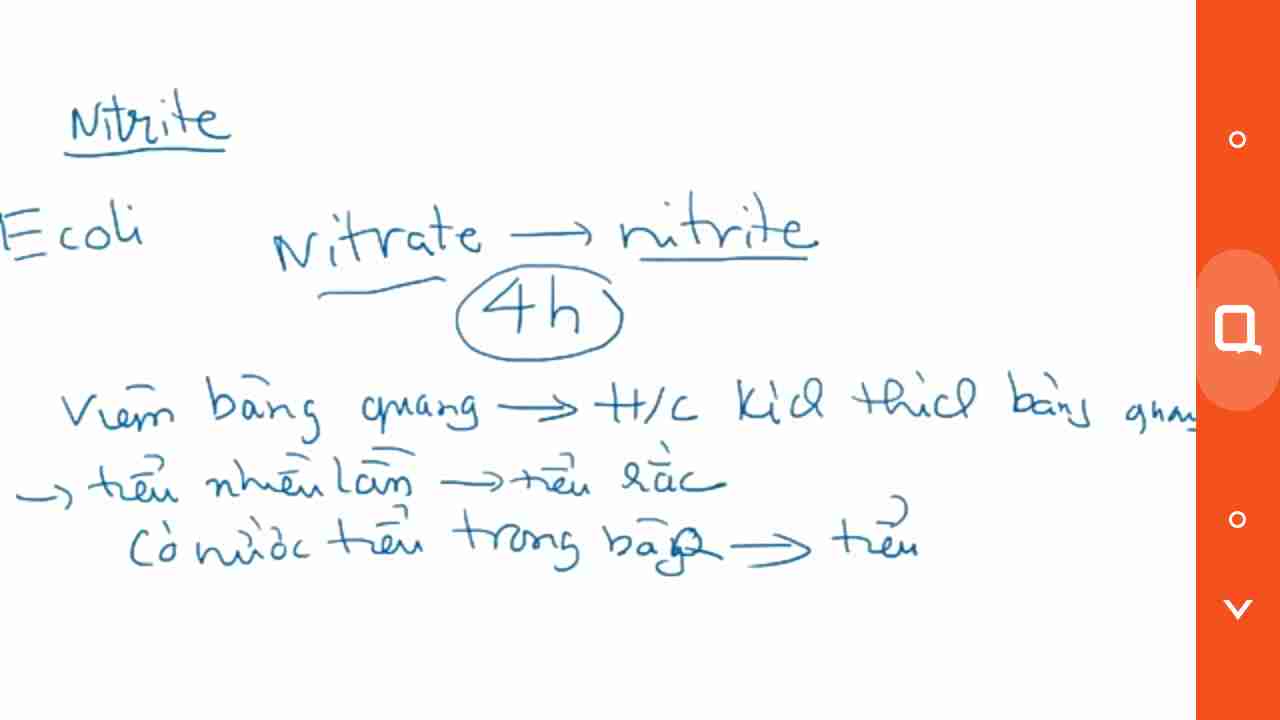 Nitrite
E coli Nitrate → nitrite
4h
Viêm bàng quang → H/C kích thích bàng quang
→ tiểu nhiều lần → tiểu rắc
Có nước tiểu trong bàQ → tiểu